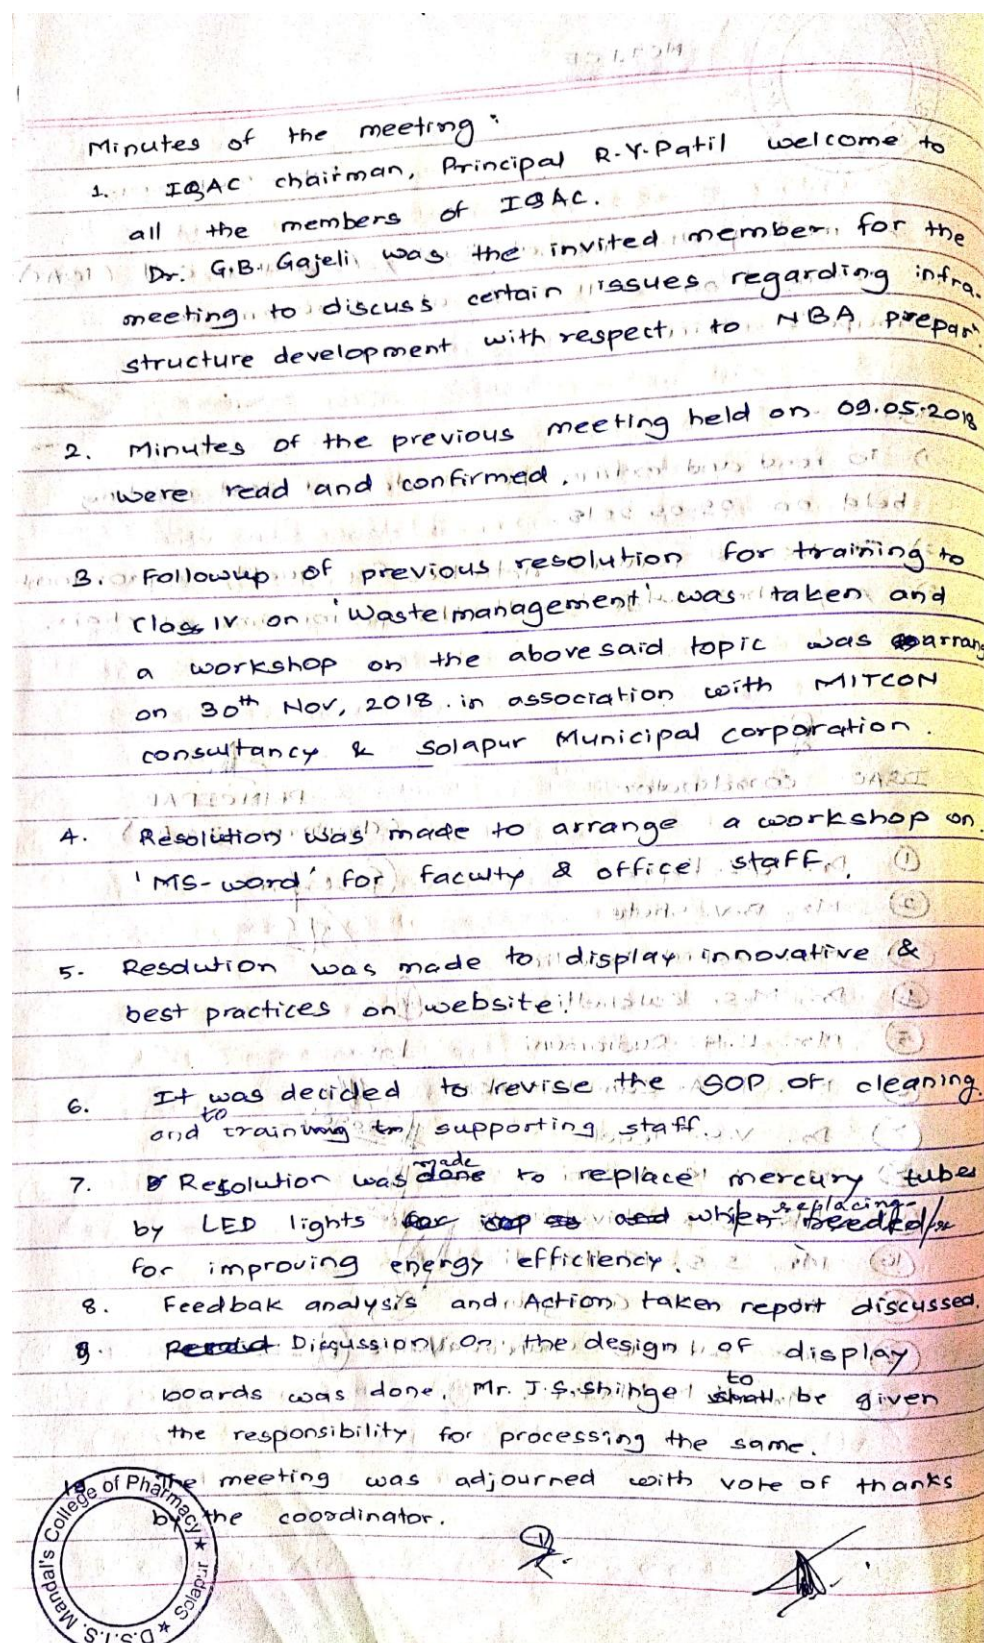 Minutes of the meeting:
1. IQAC chairman, Principal R.Y.Patil welcome to
all the members of IQAC.
Dr. G.B. Gajeli was the invited member for the
meeting to discuss certain issues regarding infra-
structure development with respect to NBA prepar
2. Minutes of the previous meeting held on 09.05.2018
were read and confirmed.
3. Followup of previous resolution for training to
class IV on 'Waste management' was taken and
a workshop on the above said topic was arrang
on 30th Nov, 2018. in association with MITCON
consultancy & Solapur Municipal corporation.
4. Resolution was made to arrange a workshop on
'MS-word' for faculty & office staff.
5. Resolution was made to display innovative &
best practices on website.
6. It was decided to revise the SOP of cleaning
and to training to supporting staff.
7. Resolution was made done to replace mercury tubes
by LED lights for and when replacing needed
for improving energy efficiency.
8. Feedbak analysis and Action taken report discussed.
9. Discussion on the design of display
boards was done. Mr. J.S.Shinge to shall be given
the responsibility for processing the same.
10. The meeting was adjourned with vote of thanks
by the coordinator.
D.S.T.S. Mandal's College of Pharmacy ★ Solapur ★